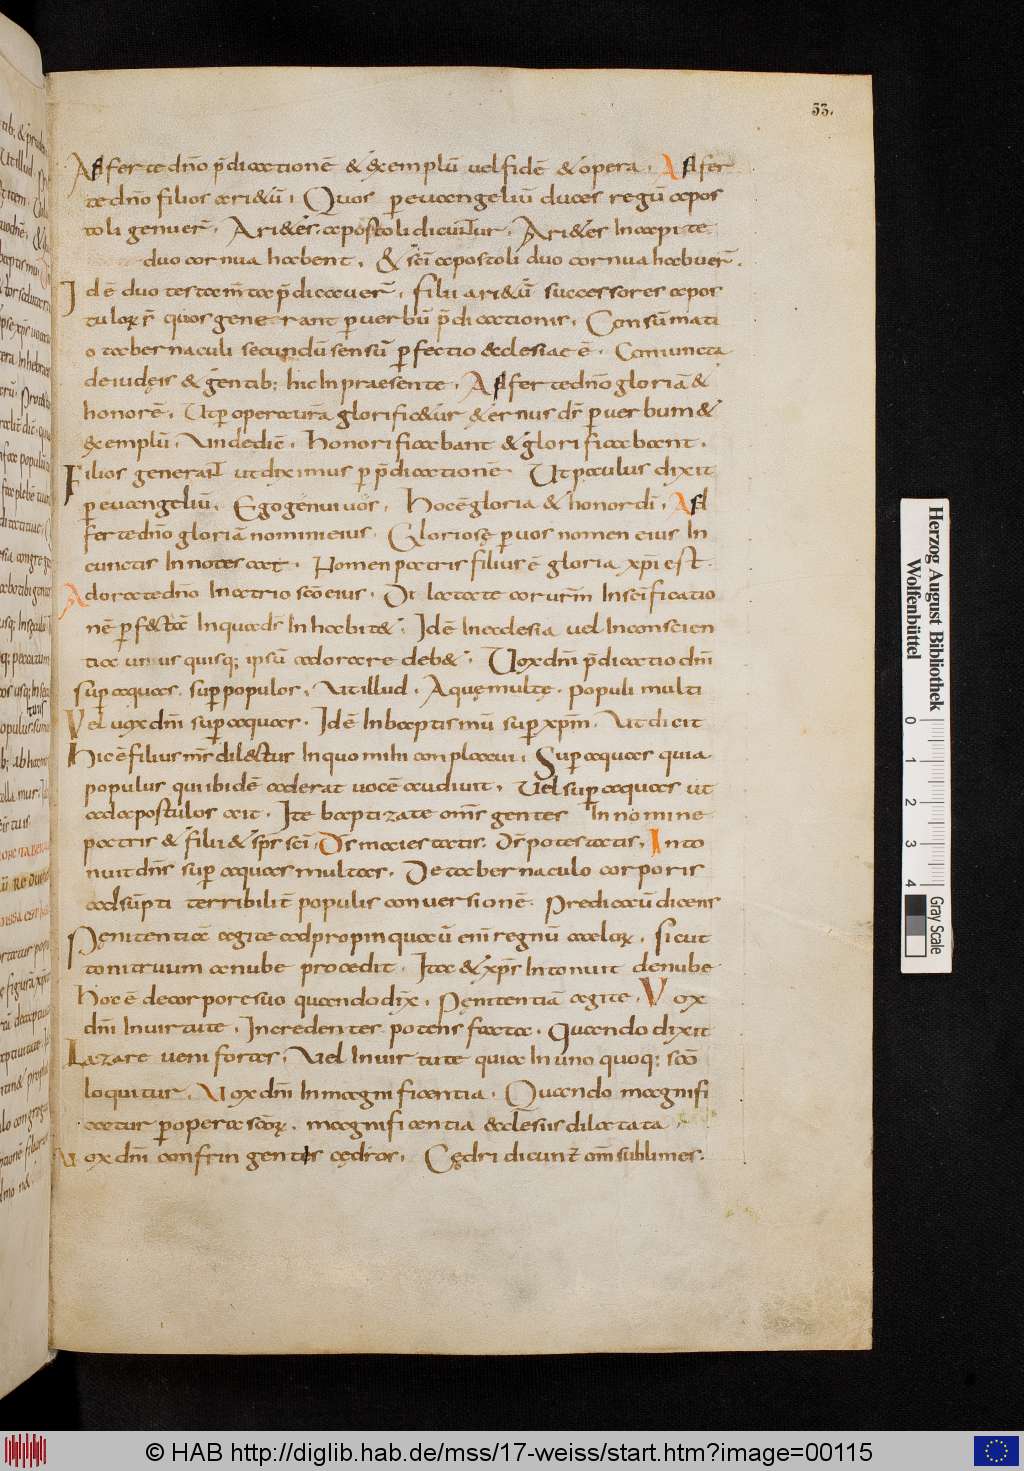 53.
Afferte dn̄o p̄dicationē & exemplū vel fidē & opera. Affer
te dn̄o filios ari&ū. Quos per evangeliū duces regū apos
toli genuer̄. Ari&es apostoli dicuntur. Ari&es in capite
duo cornua habent. & sc̄i apostoli duo cornua habuer̄.
Idē duo testam̄ta p̄dicaver̄. filii ari&ū successores apos
tuloꝝ quos generant per verbū p̄dicationis. Consūmati
o tabernaculi secundū sensū perfectio ecclesiae ē. Coniuncta
de iudęis & gentib; hic in praesente. Afferte dn̄o gloriā &
honorē. Ut per operatura glorific&ur & per verbum &
exemplū. Unde dic̄. Honorificabant & glorificabant.
Filios generant ut diximus per p̄dicationē Ut paulus dixit
per evangeliū. Ego genui vos. Hoc ē gloria & honor dn̄i. Af
ferte dn̄o gloriā nomini eius. Gloriosę per vos nomen eius in
cunctis innotescat. Nomen patris filius ē gloria xp̄i est.
Adorate dn̄o in atrio sc̄o eius. Di latate cor ur̄m in sc̄ificatio
nē perf&tā In qua ds̄ inhabit&. Idē in ecclesia vel in conscien
tia unus quisq; ipsū adorare deb&. Vox dn̄i p̄dicatio dn̄i
super aquas. super populos. Ut illud. Aquę multę. populi multi
Vel vox dn̄i super aquas. Idē in baptismū super xp̄m. Ut dicit
Hic ē filius m̄s dil&tus in quo mihi complacui. Super aquas quia
populus qui ibidē aderat vocē audivit. Vel super aquas ut
ad apostulos ait. Ite baptizate om̄s gentes In nomine
patris & filii & sp̄s sc̄i. Ds̄ maiestatis. Ds̄ potestatis. Into
nuit dn̄s super aquas multas. De tabernaculo corporis
adsūpti terribilit̄ populis conversionē. Predicavū dicens
Pęnitentiā agite adpropinquavū eni regnū caeloꝝ. sicut
tonitruum a nube procedit. Ita & xp̄s intonuit de nube
Hoc ē de corpore suo quando dix̄. Pęnitentiā agite. Vox
dn̄i in virtute. In credentes potens facta. Quando dixit
Lazare veni foras. Vel in virtute quia in uno quoq; sc̄o
loquitur. Vox dn̄i in magnificentia. Quando magnifi
catur per opera sc̄oꝝ. magnificentia ecclesiis dilatata
Vox dn̄i confringentis cędros. Cędri dicunt̄ om̄ sublimes.
Herzog August Bibliothek
Wolfenbüttel
0 1 2 3 4
Gray Scale
© HAB http://diglib.hab.de/mss/17-weiss/start.htm?image=00115